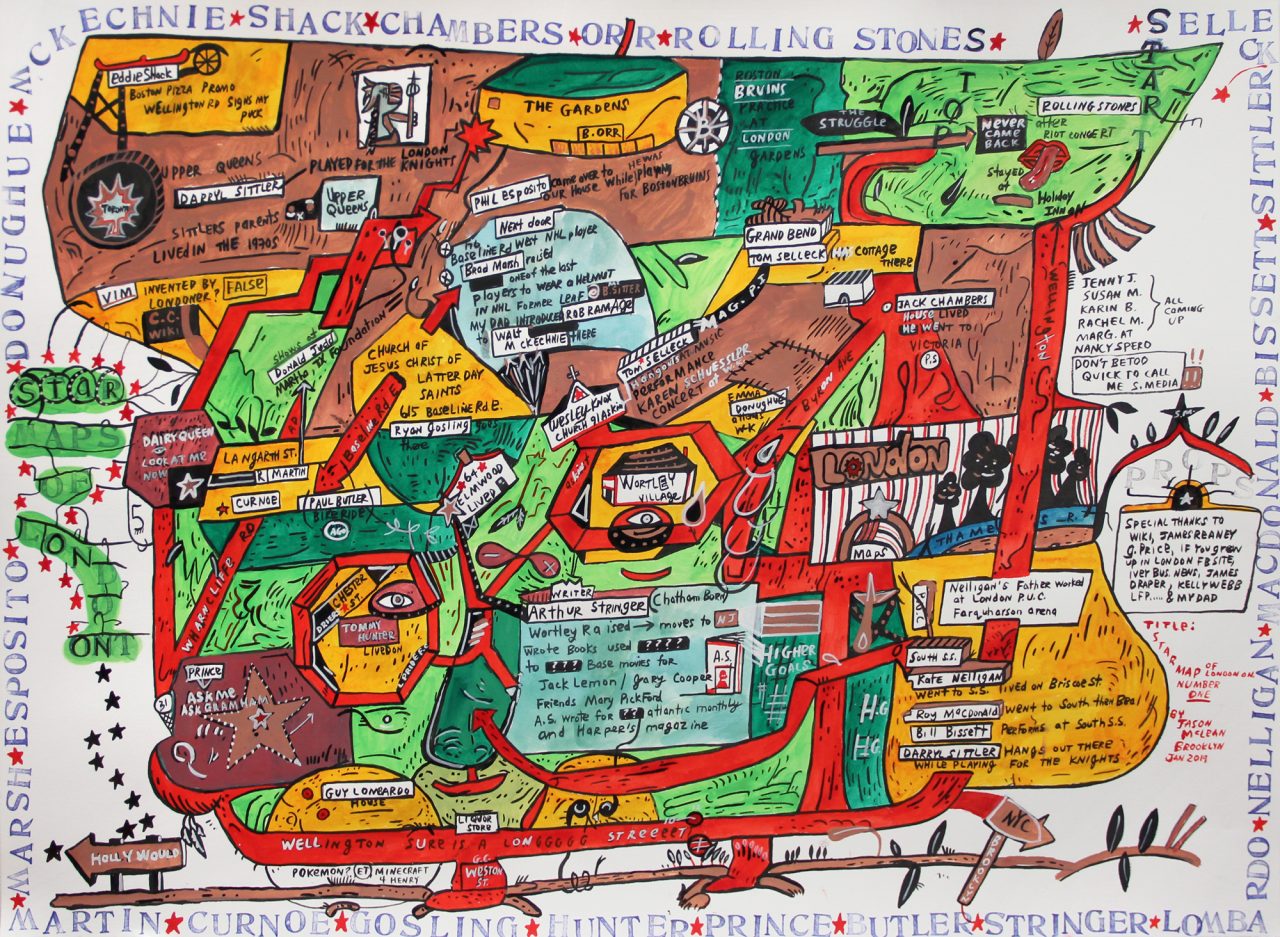 McKECHNIE★SHACK★CHAMBERS★ORR★ROLLING STONES★
★SELLECK
START
STOP
eddie Shack
BOSTON PIZZA PROMO
WELLINGTON RD SIGNS MY
PUCK
TORONTO
UPPER QUEENS
DARRYL SITTLER
PLAYED FOR THE LONDON
KNIGHTS
UPPER
QUEENS
SITTLERS PARENTS
LIVED IN THE 1970s
THE GARDENS
B.ORR
B
BOSTON
BRUINS
PRACTICE
AT
LONDON
GARDENS
THE
STRUGGLE
NEVER
CAME
BACK
ROLLING STONES
after
RIOT CONCERT
stayed
at
Holiday
INN
PHIL ESPOSITO came over to
OUR HOUSE WHILE HE WAS playing
FOR BOSTON BRUINS
Next door
Baseline Rd West NHL player
Brad Marsh raised
one of the last
players to wear a HELMUT
IN NHL FORMER LEAF B.SITTER
MY DAD INTRODUCED ROB RAMAGE
to WALT
McKECHNIE HERE
GRAND BEND
TOM SELLECK HAS COTTAGE
THERE
VIM INVENTED BY
LONDONER? FALSE
C.C.
WIKI
SHOWS at
Donald Judd
Martha Foundation
CHURCH OF
JESUS CHRIST OF
LATTER DAY
SAINTS
615 BASELINE Rd E.
Ryan Gosling goes
there
TOM SELLECK MAG. P.I.
HEAD GREAT MUSIC
PERFORMANCE
KAREN SCHUESSLER
CONCERT at
WESLEY KNOX
CHURCH
EMMA
DONUGHUE
BYRON AVE
JACK CHAMBERS
HOUSE LIVED
HE WENT TO
VICTORIA
P.S
WELLINGTON
JENNY J.
SUSAN M.
KARIN B.
RACHEL M.
MARG. AT
NANCY SPERO
ALL
COMING
UP
DON'T BE TOO
QUICK TO CALL
ME S.MEDIA !!
STAR
MAPS
OF
LONDON
ONT
DAIRY QUEEN
LOOK AT ME
NOW
LANGARTH ST.
R MARTIN
CURNOE
PAUL BUTLER
BIKE RIDE X
AGO
BASLIN Rd E
64
ELMWOOD
LIVED
WORTLEY
VILLAGE
LONDON
MAPS
THAMES R.
PROPS
SPECIAL THANKS TO
WIKI, JAMES REANEY
G. PRICE, IF YOU GREW
UP IN LONDON FB SITE,
IVEY BUS. NEWS, JAMES
DRAPER, KELLY WEBB
LFP..... & MY DAD
WHARNCLIFFE RD
CHESTER
ST.
TOMMY
HUNTER
LIVED ON
WRITER
Arthur Stringer Chatham Born
Wortley Raised → moves to NJ
wrote Books used ????
to ??? Base movies for
Jack Lemon / Gary Cooper
Friends Mary Pickford
A.S. wrote for ?? atlantic monthly
and Harper's magazine
A.S.
HIGHER
GOALS
H.G
H.G
P.U.C
Nelligan's Father Worked
at London P.U.C.
Farquharson arena
SOUTH S.S.
Kate Nelligan
went to S.S. lived on Briscoe St
Roy MacDonald went to South then Beal
Bill Bissett Performs at South S.S.
DARRYL SITTLER HANGS OUT THERE
WHILE PLAYING FOR THE KNIGHTS
TITLE:
STAR
MAP OF
LONDON ON.
NUMBER
ONE
BY
JASON
McLEAN
BROOKLYN
JAN 2019
PRINCE
ASK ME
ASK GRAHAM
31
GUY LOMBARDO
HOUSE
LIQUOR
STORE
WELLINGTON SURE IS A LONGGGGG STREEEET
HOLLY WOULD
POKEMON? ET MINECRAFT
4 HENRY
G.C.
WESTON
ST.
NYC
MARSH★ESPOSITO★DONUGHUE★
MARTIN★CURNOE★GOSLING★HUNTER★PRINCE★BUTLER★STRINGER★LOMBA
RDO★NELLIGAN★MACDONALD★BISSETT★SITTLER★